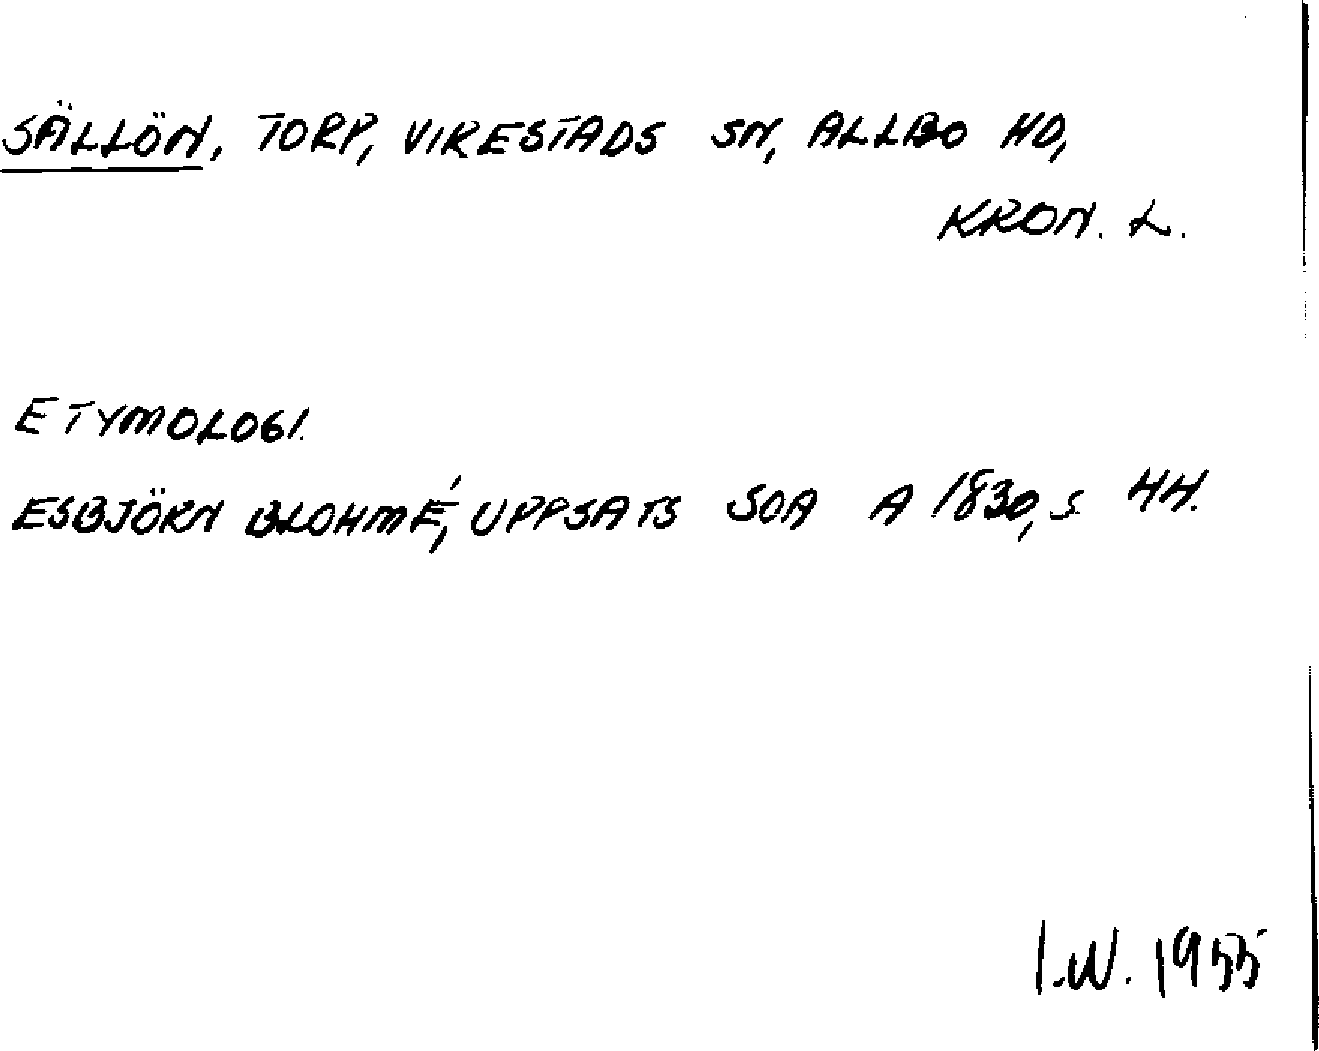 SÄLLÖN, TORP, VIRESTADS SN, ALLBO HD,
KRON. L.
ETYMOLOGI.
ESBJÖRN BLOHMÉ, UPPSATS SOA A 1830, S. 44.
I.W. 1955